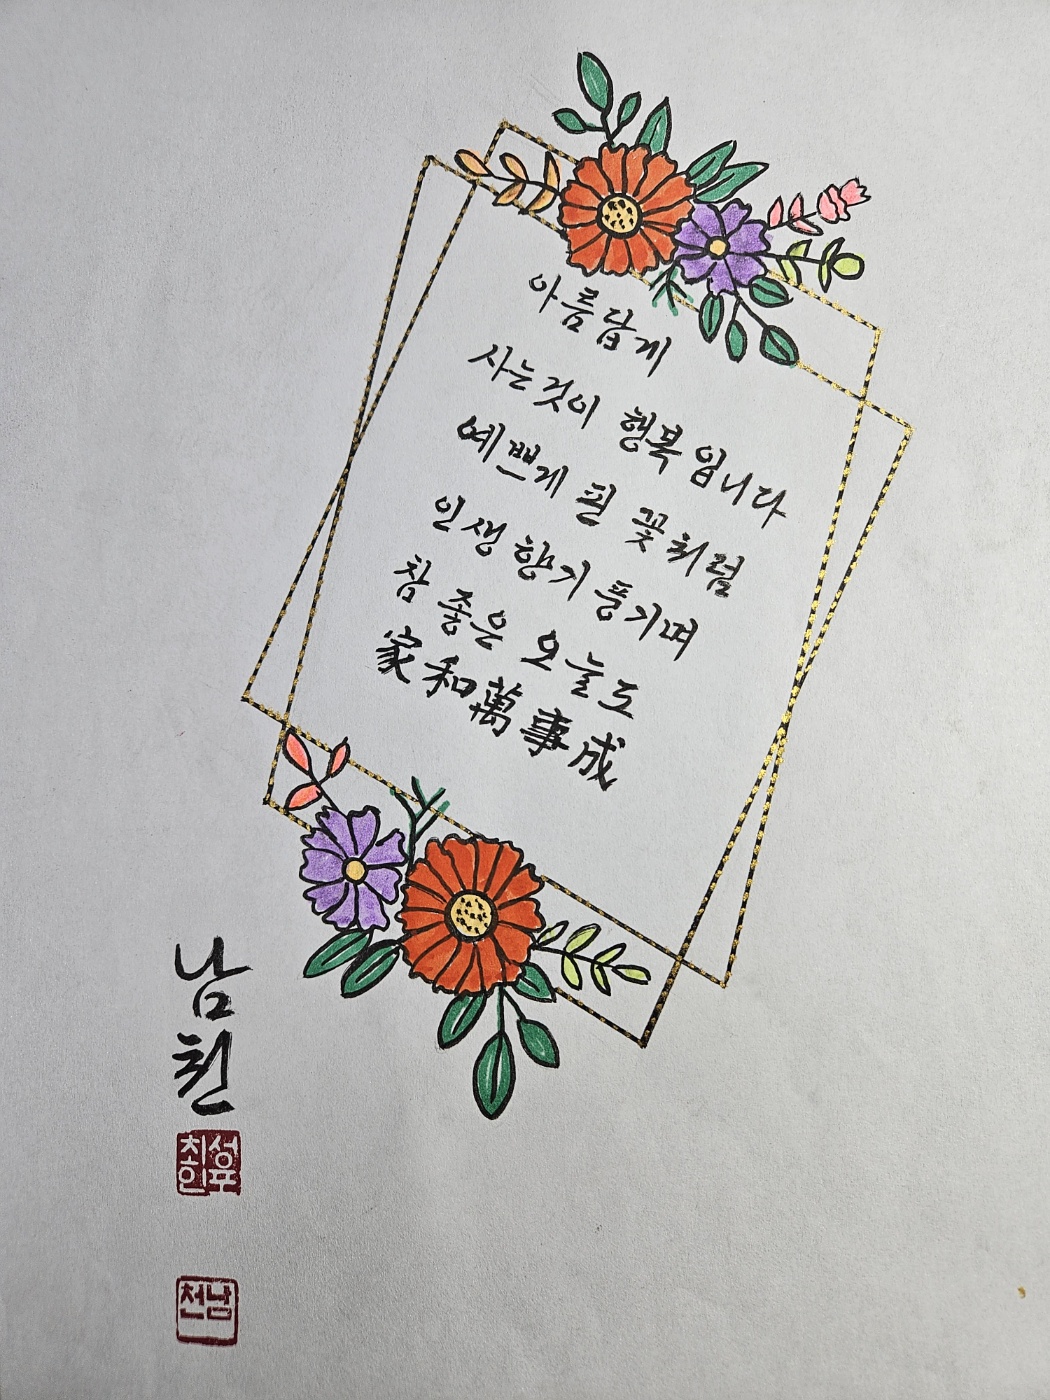 아름답게
사는것이 행복입니다
예쁘게 핀 꽃처럼
인생향기 풍기며
참 좋은 오늘도
家和萬事成
남천
남천